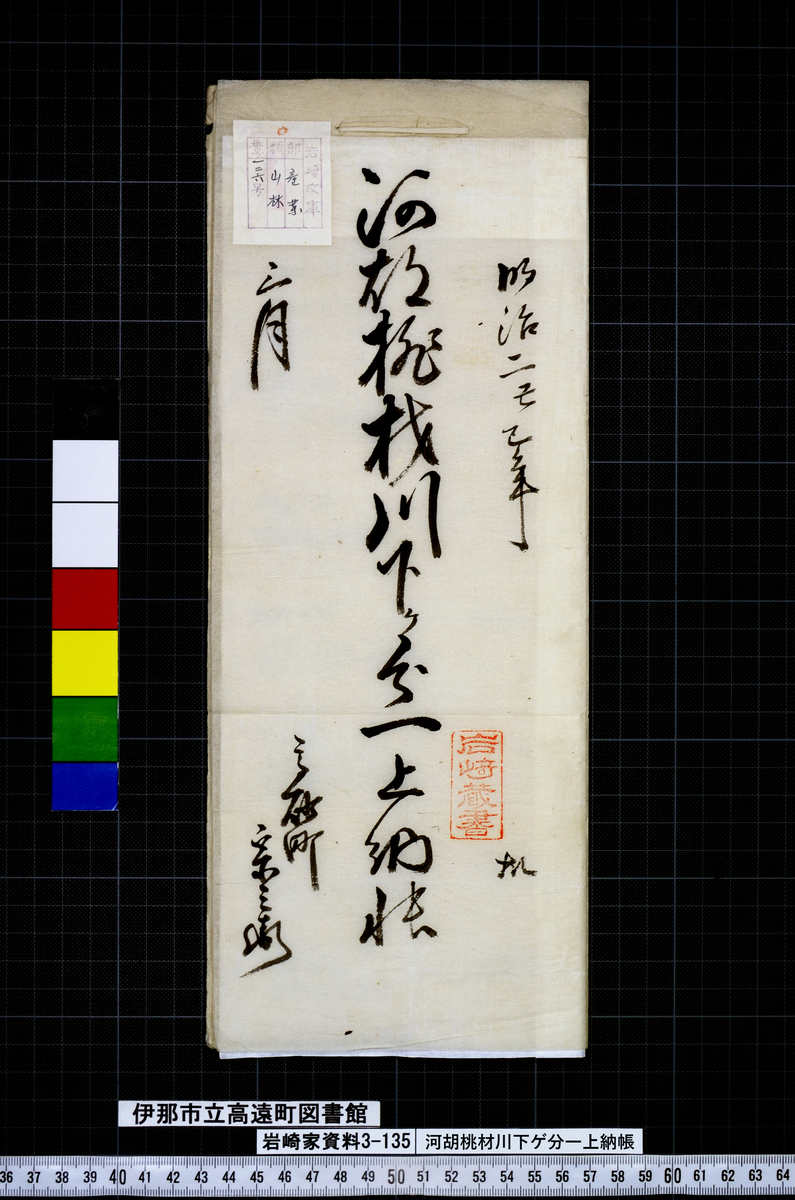 明治二年巳年
河胡桃材川下ヶ分一上納帳
三月
町
岩崎文庫
部 産業
類 山林
一三六号
岩崎蔵書
伊那市立高遠町図書館
岩崎家資料3-135
河胡桃材川下ゲ分一上納帳
36 37 38 39 40 41 42 43 44 45 46 47 48 49 50 51 52 53 54 55 56 57 58 59 60 61 62 63 64